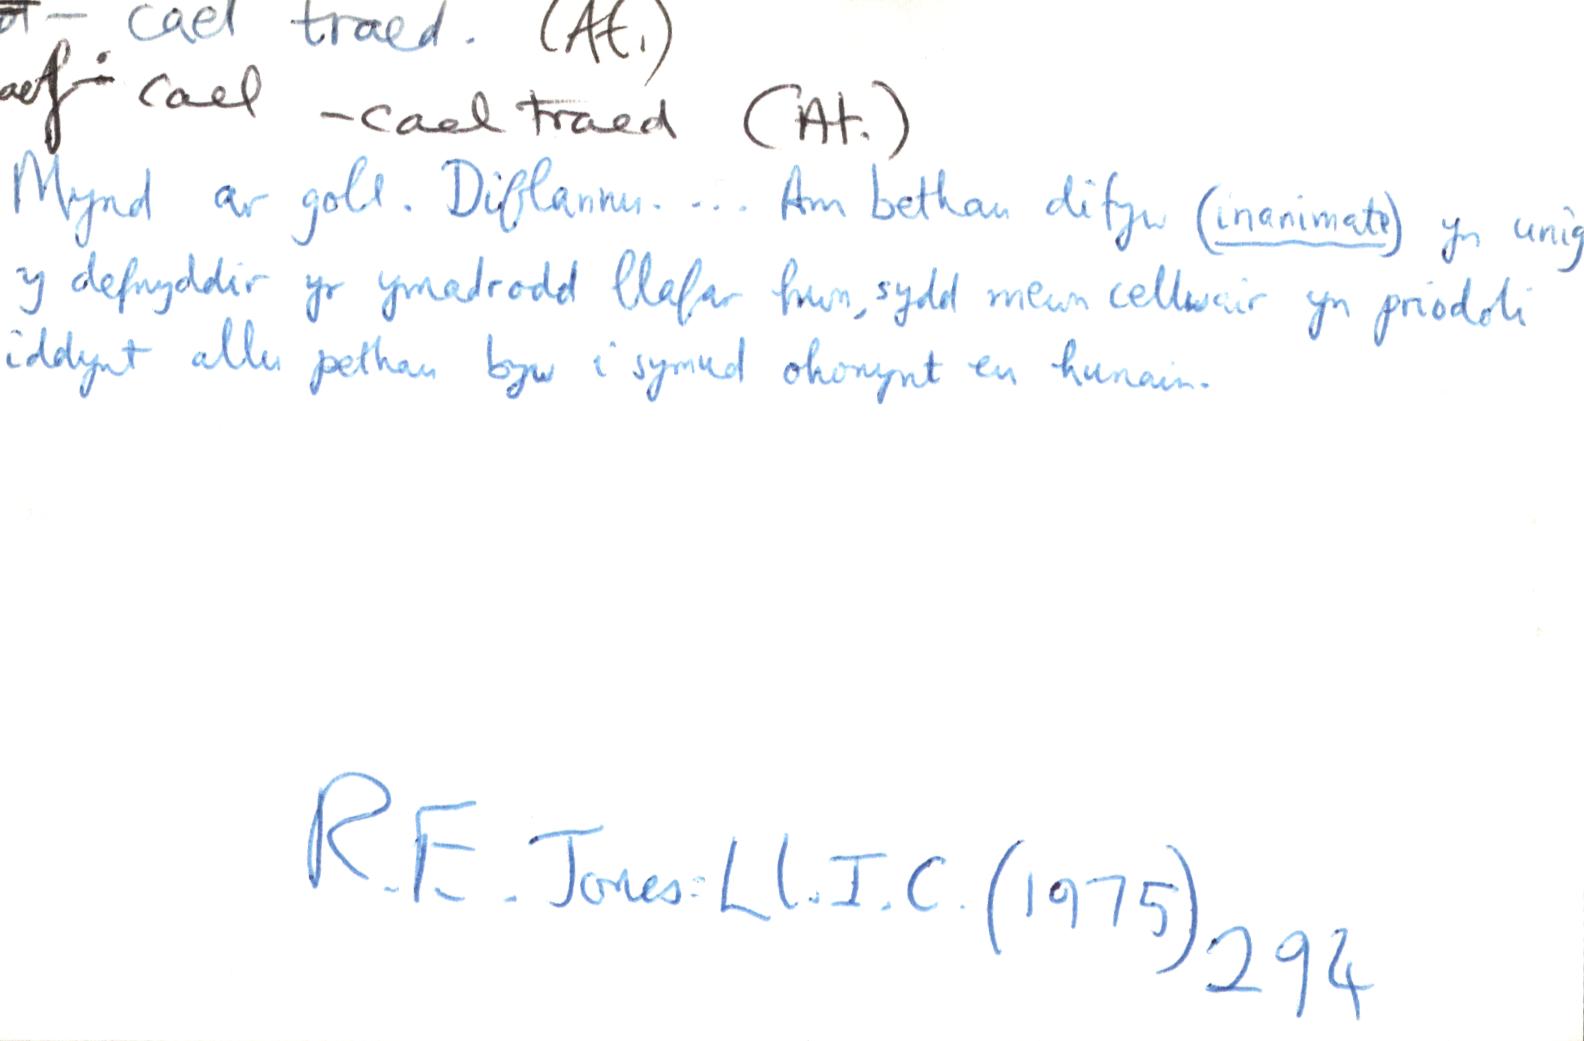 – cael traed. (At.)
aef – cael – cael traed (At.)
Mynd ar goll. Diflannu. ... Am bethau difyw (inanimate) yn unig
y defnyddir yr ymadrodd llafar hwn, sydd mewn cellwair yn priodoli
iddynt allu pethau byw i symud ohonynt eu hunain.
R.E. Jones: Ll.I.C. (1975) 294